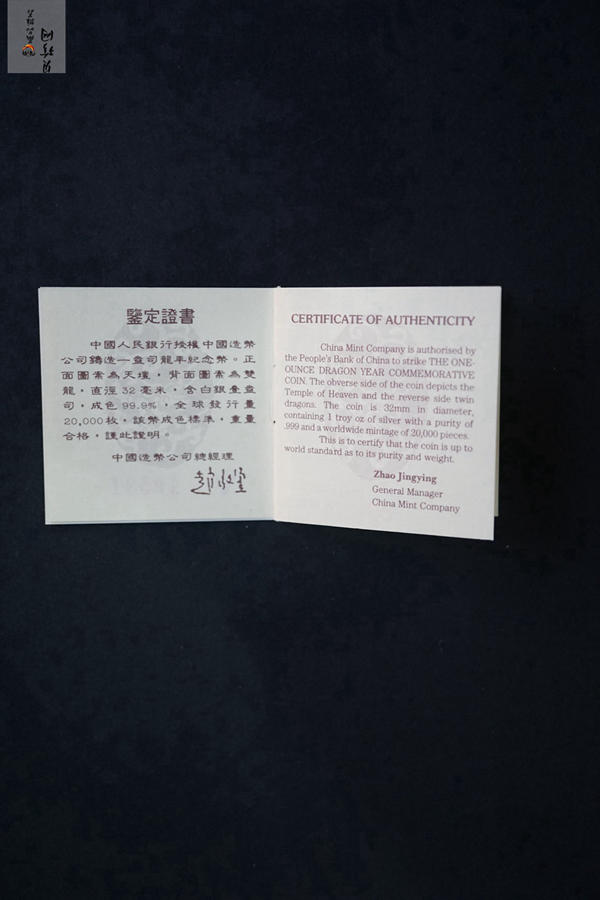 鑒定證書
中國人民銀行授權中國造幣
公司鑄造一盎司龍年紀念幣。正
面圖案為天壇，背面圖案為雙
龍，直徑32毫米，含白銀量盎
司，成色99.9%，全球發行量
20,000枚，該幣成色標準，重量
合格，謹此證明。
中國造幣公司總經理
CERTIFICATE OF AUTHENTICITY
China Mint Company is authorised by
the People's Bank of China to strike THE ONE-
OUNCE DRAGON YEAR COMMEMORATIVE
COIN. The obverse side of the coin depicts the
Temple of Heaven and the reverse side twin
dragons. The coin is 32mm in diameter,
containing 1 troy oz of silver with a purity of
.999 and a worldwide mintage of 20,000 pieces.
This is to certify that the coin is up to
world standard as to its purity and weight.
Zhao Jingying
General Manager
China Mint Company